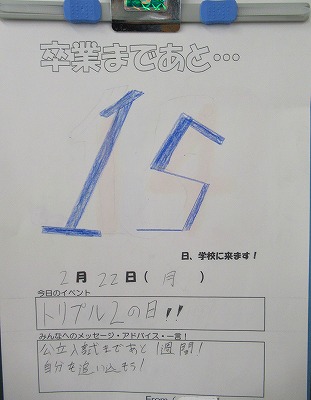 卒業まであと…
15
日、学校に来ます！
2月22日(月)
今日のイベント
トリプル2の日!!
みんなへのメッセージ・アドバイス・一言！
公立入試まであと1週間！
自分を追い込もう！
From